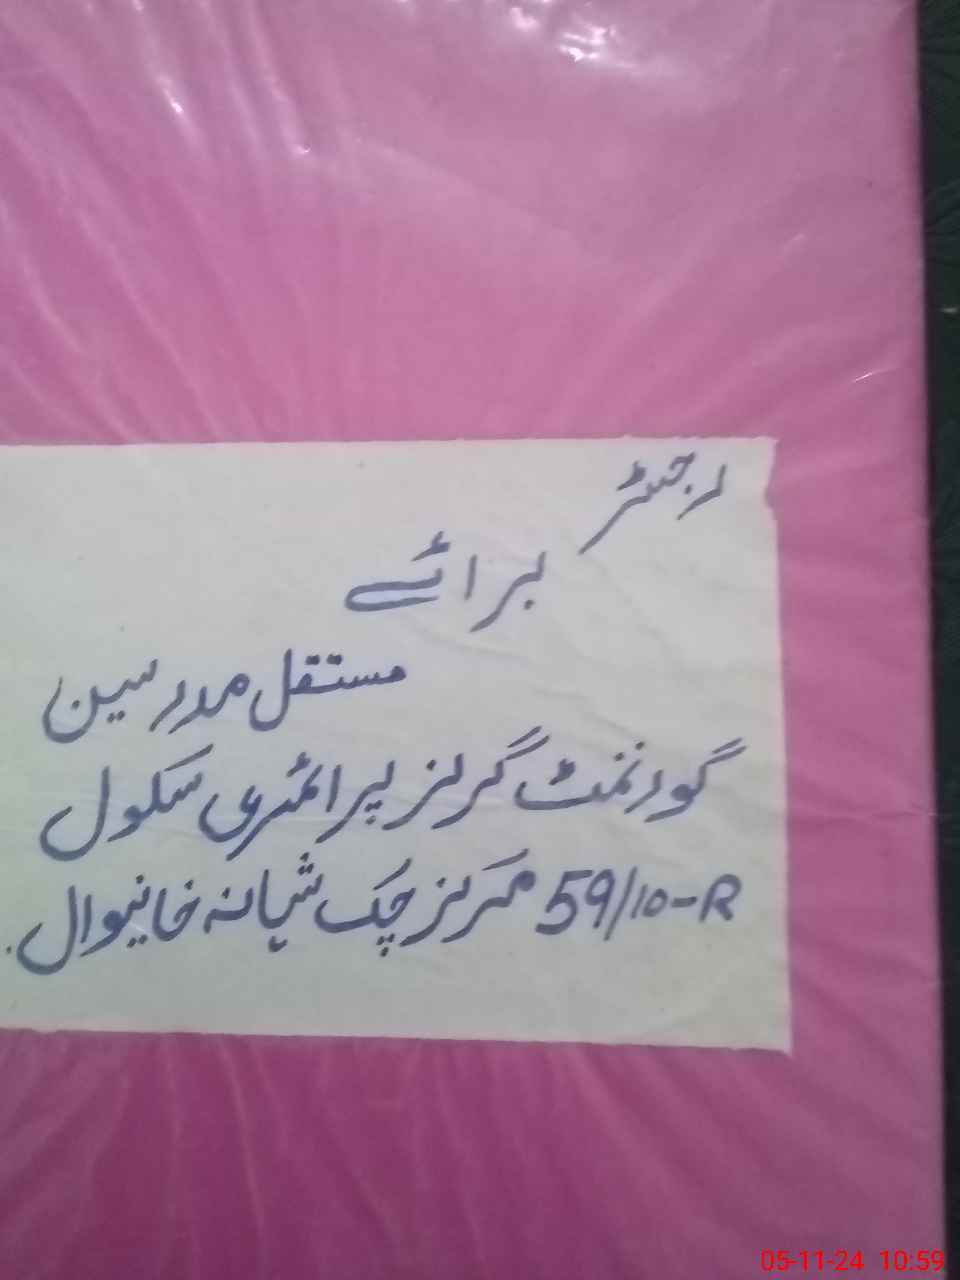 رجسٹر
برائے
مستقل مدرسین
گورنمنٹ گرلز پرائمری سکول
59/10-R مرکز چک شہانہ خانیوال.
05-11-24 10:59